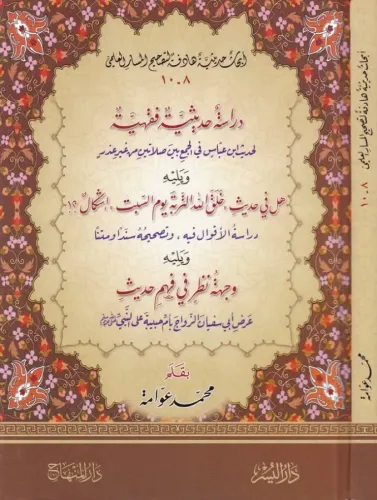 أبحاث حديثية هادفة لتصحيح المسار العلمي
٨ - ١٠
دراسة حديثية فقهية
لحديث ابن عباس في الجمع بين صلاتين من غير عذر
ويليه
هل في حديث «خلق الله التربة يوم السبت» إشكال؟!
دراسة الأقوال فيه، وتصحيحه سندًا ومتنًا
ويليه
وجهة نظر في فهم حديث
عرض أبي سفيان الزواج بأم حبيبة على النبي ﷺ
بقلم
محمد عوامة
دار اليسر
دار المنهاج
أبحاث حديثية هادفة لتصحيح المسار العلمي
٨ - ١٠
محمد عوامة